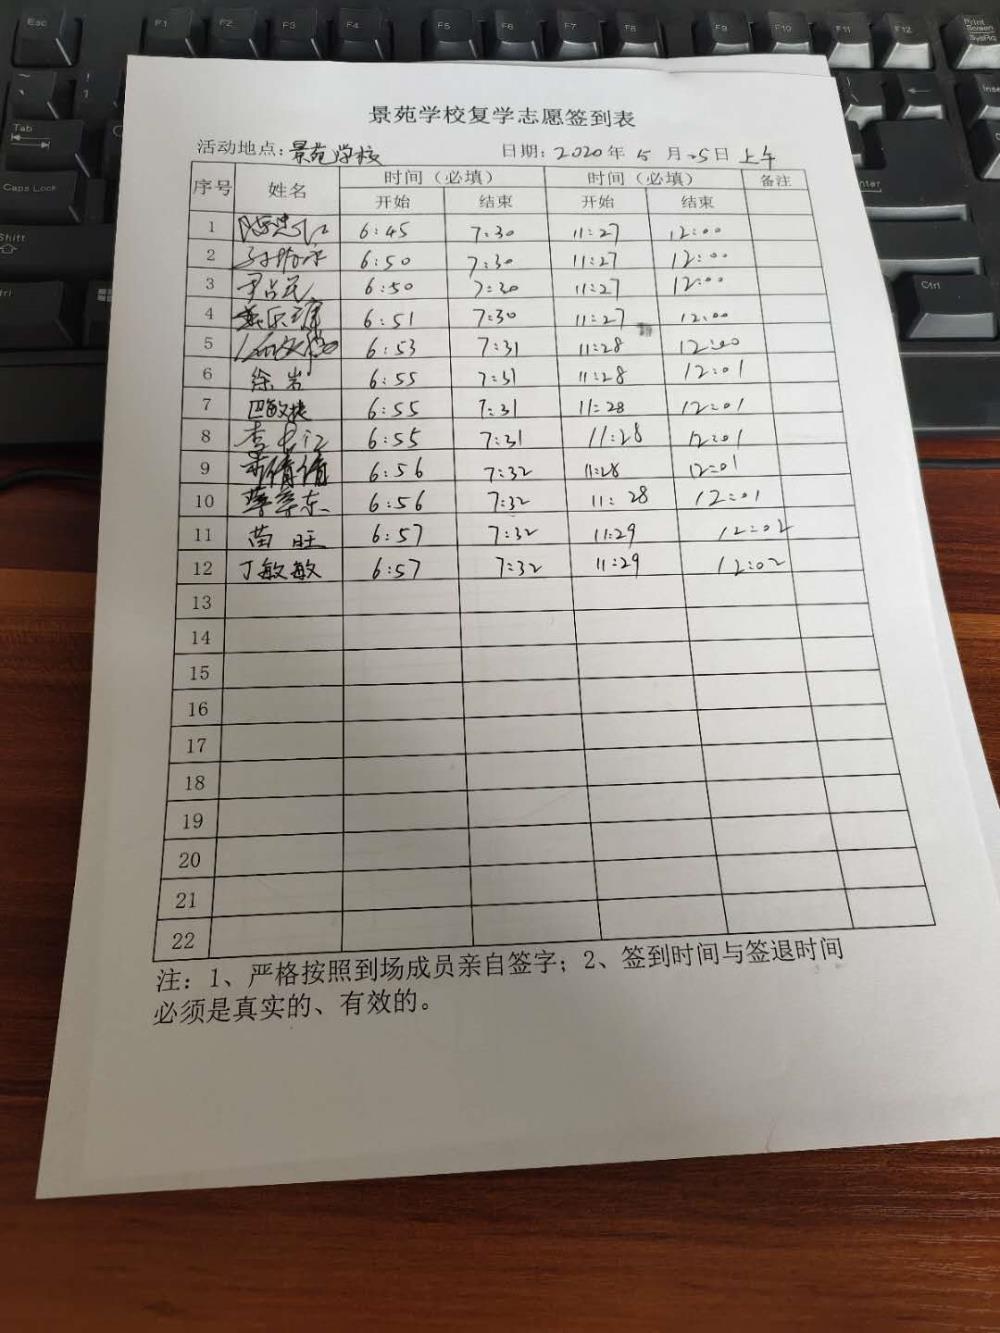 Esc F1 F2 F3 F4 F5 F6 F7 F8 F9 F10 F11 F12 Print Screen SysRq
Tab
Caps Lock
Shift
Ctrl
景苑学校复学志愿签到表
活动地点:景苑学校 日期:2020年5月25日上午
序号 姓名 时间(必填) 时间(必填) 备注
开始 结束 开始 结束
1 6:45 7:30 11:27 12:00
2 6:50 7:30 11:27 12:00
3 尹占民 6:50 7:30 11:27 12:00
4 6:51 7:30 11:27 12:00
5 6:53 7:31 11:28 12:00
6 徐岩 6:55 7:31 11:28 12:01
7 巴敏捷 6:55 7:31 11:28 12:01
8 6:55 7:31 11:28 12:01
9 倩倩 6:56 7:32 11:28 12:01
10 6:56 7:32 11:28 12:01
11 苗旺 6:57 7:32 11:29 12:02
12 丁敏敏 6:57 7:32 11:29 12:02
13
14
15
16
17
18
19
20
21
22
注:1、严格按照到场成员亲自签字;2、签到时间与签退时间
必须是真实的、有效的。